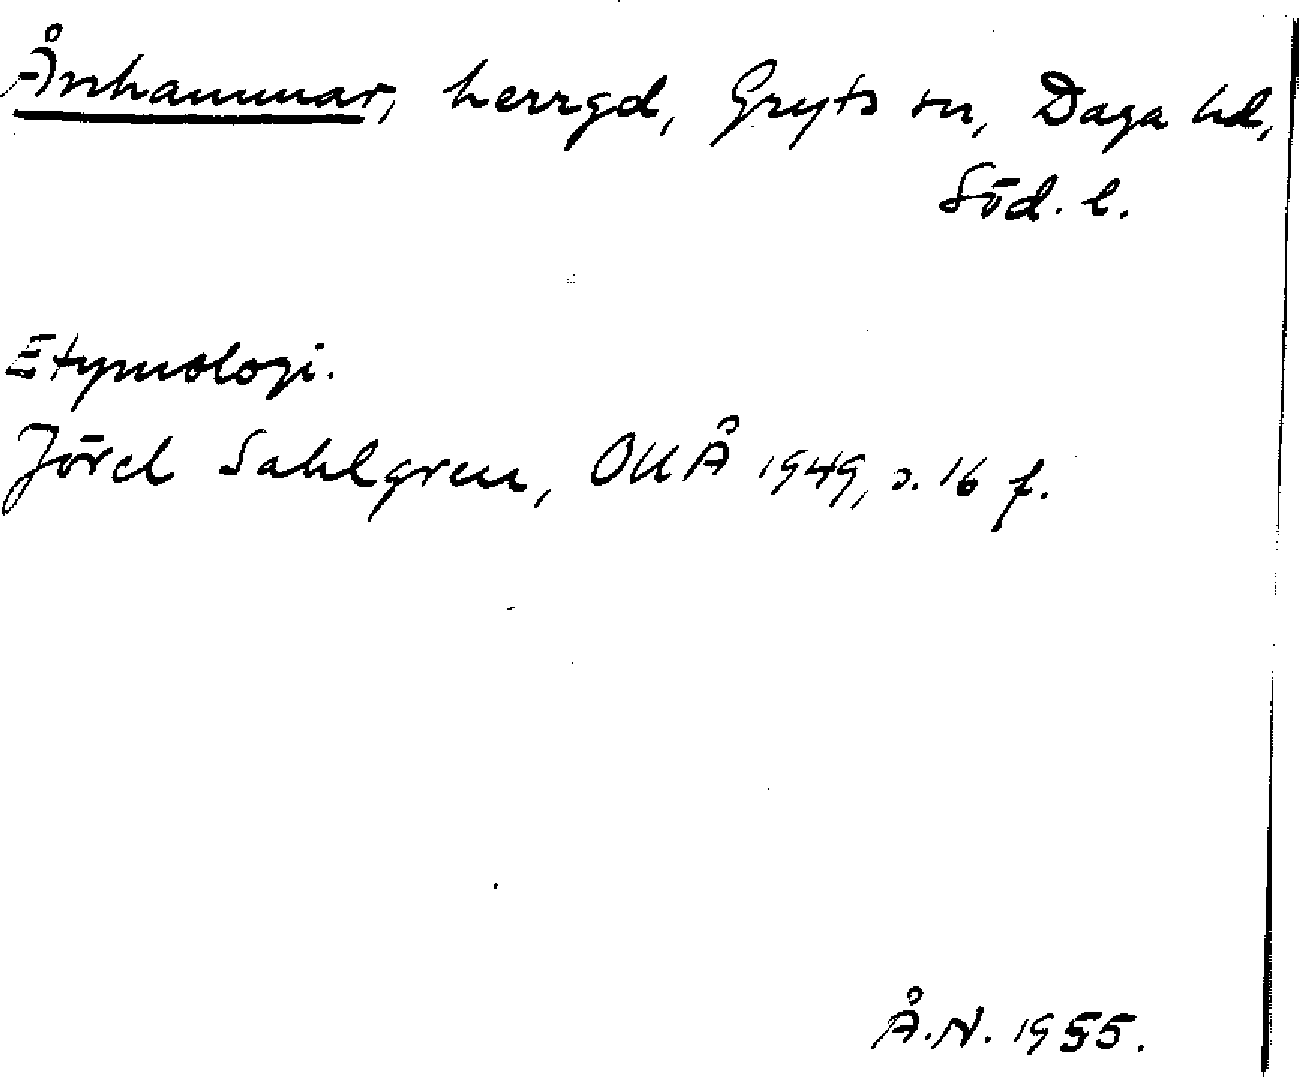 Ånhammar, herrgd, Gryts sn, Daga hd,
Söd. l.
Etymologi.
Jöran Sahlgren, OUÅ 1949, s. 16 f.
Å.N. 1955.